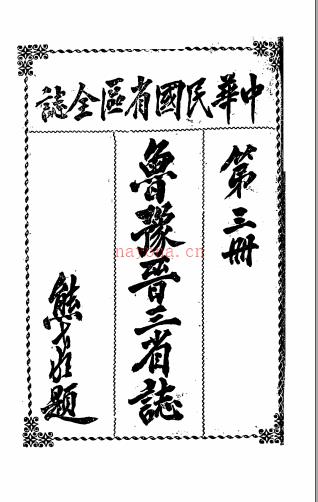 中華民國省區全誌
第三冊
魯豫晉三省誌
熊少豪題
nayona.cn